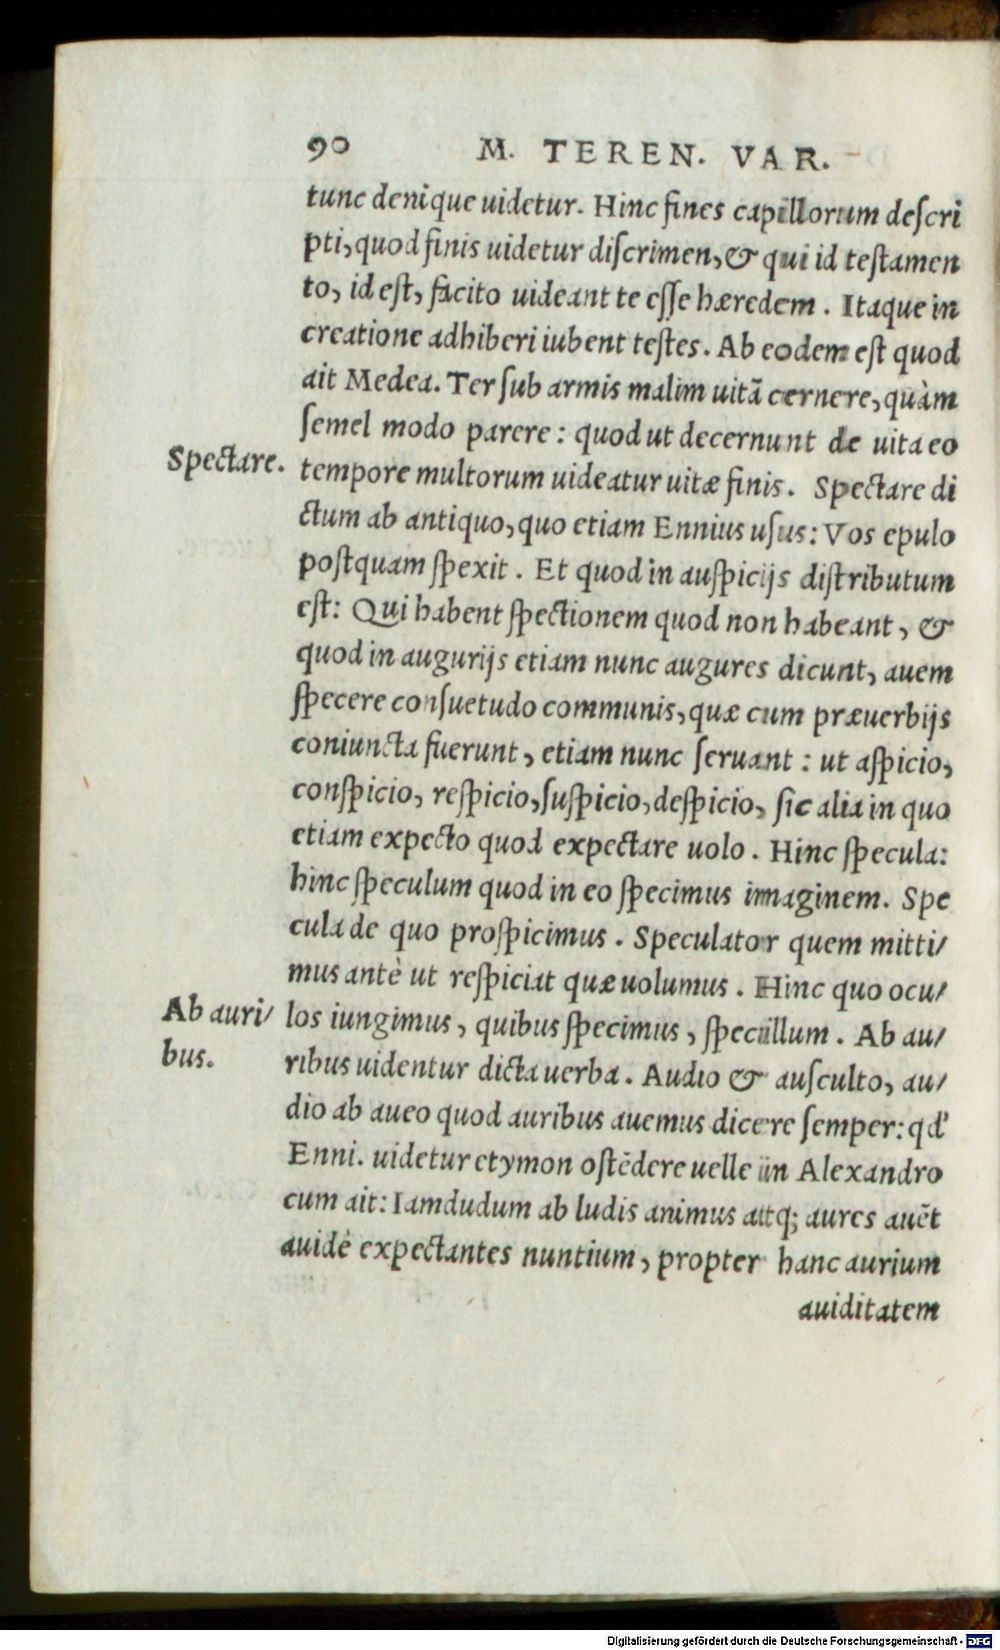 90 M. TEREN. VAR.
tunc denique uidetur. Hinc fines capillorum deſcri
pti, quod finis uidetur diſcrimen, & qui id teſtamen
to, id eſt, facito uideant te eſſe hæredem. Itaque in
creatione adhiberi iubent teſtes. Ab eodem eſt quod
ait Medea. Ter ſub armis malim uitã cernere, quàm
ſemel modo parere: quod ut decernunt de uita eo
Spectare.
tempore multorum uideatur uitæ finis. Spectare di
ctum ab antiquo, quo etiam Ennius uſus: Vos epulo
poſtquam ſpexit. Et quod in auſpicijs diſtributum
eſt: Qui habent ſpectionem quod non habeant, &
quod in augurijs etiam nunc augures dicunt, auem
ſpecere conſuetudo communis, quæ cum præuerbijs
coniuncta fuerunt, etiam nunc ſeruant: ut aſpicio,
conſpicio, reſpicio, ſuſpicio, deſpicio, ſic alia in quo
etiam expecto quod expectare uolo. Hinc ſpecula:
hinc ſpeculum quod in eo ſpecimus imaginem. Spe
cula de quo proſpicimus. Speculator quem mitti/
mus antè ut reſpiciat quæ uolumus. Hinc quo ocu/
Ab auri/
los iungimus, quibus ſpecimus, ſpecillum. Ab au/
bus.
ribus uidentur dicta uerba. Audio & auſculto, au/
dio ab aueo quod auribus auemus dicere ſemper: qd'
Enni. uidetur etymon oſtẽdere uelle in Alexandro
cum ait: Iamdudum ab ludis animus atq; aures auẽt
auidè expectantes nuntium, propter hanc aurium
auiditatem
Digitalisierung gefördert durch die Deutsche Forschungsgemeinschaft - DFG